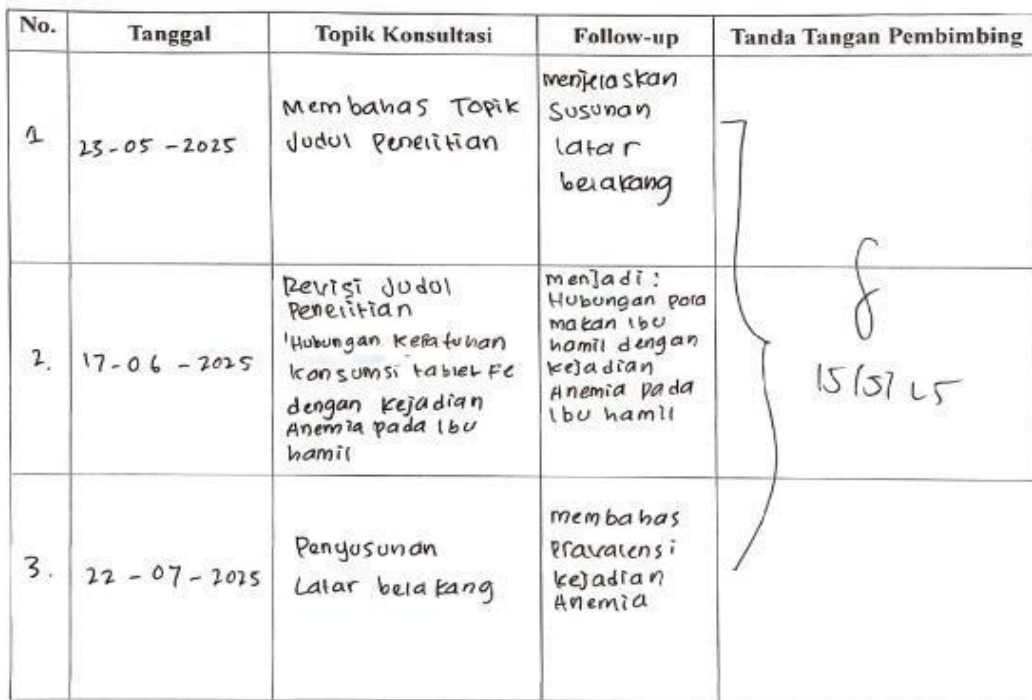 No. Tanggal Topik Konsultasi Follow-up Tanda Tangan Pembimbing
1 23-05-2025
Membahas Topik
Judul Penelitian
menjelaskan
Susunan
latar
belakang
2. 17-06-2025
Revisi Judul
Penelitian
'Hubungan Kepatuhan
konsumsi tablet Fe
dengan Kejadian
Anemia pada Ibu
hamil
menjadi :
Hubungan pola
makan ibu
hamil dengan
kejadian
Anemia pada
Ibu hamil
3. 22-07-2025
Penyusunan
Latar belakang
membahas
Pravalensi
kejadian
Anemia